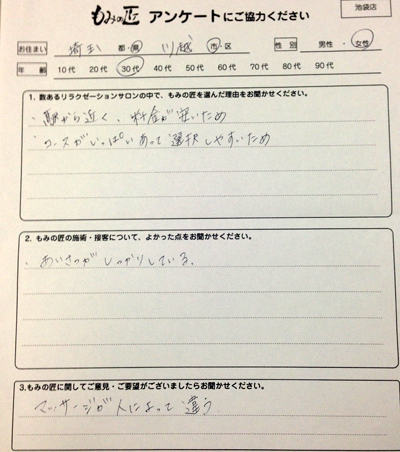 もみの匠 アンケートにご協力ください
池袋店
お住まい 埼玉 都・県 川越 市・区 性別 男性・女性
年齢 10代 20代 30代 40代 50代 60代 70代 80代 90代
1. 数あるリラクゼーションサロンの中で、もみの匠を選んだ理由をお聞かせください。
・駅から近く、料金が安いため
・コースがいっぱいあって選択しやすいため
2. もみの匠の施術・接客について、よかった点をお聞かせください。
・あいさつがしっかりしている。
3.もみの匠に関してご意見・ご要望がございましたらお聞かせください。
マッサージが人によって違う